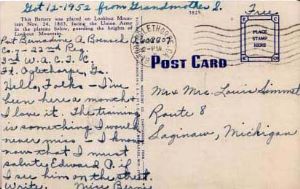 Oct 12-1952 from Grandmother S.
This Battery was placed on Lookout Moun-
tain Nov. 24, 1863, facing the Union Army
in the plateau below, guarding the heights of
Lookout Mountain.
Free
PLACE
STAMP
HERE
POST CARD
Co. - 22nd Reg.
3rd W.A.C. T.C.
Ft. Oglethorpe, Ga.
Hello, Folks - I've
been here a month
I love it. The training
is something I would
never miss - I know
now that I must
salute Edward if
I see him on the street.
Write.
Mr & Mrs Louis
Route 8
Saginaw, Michigan